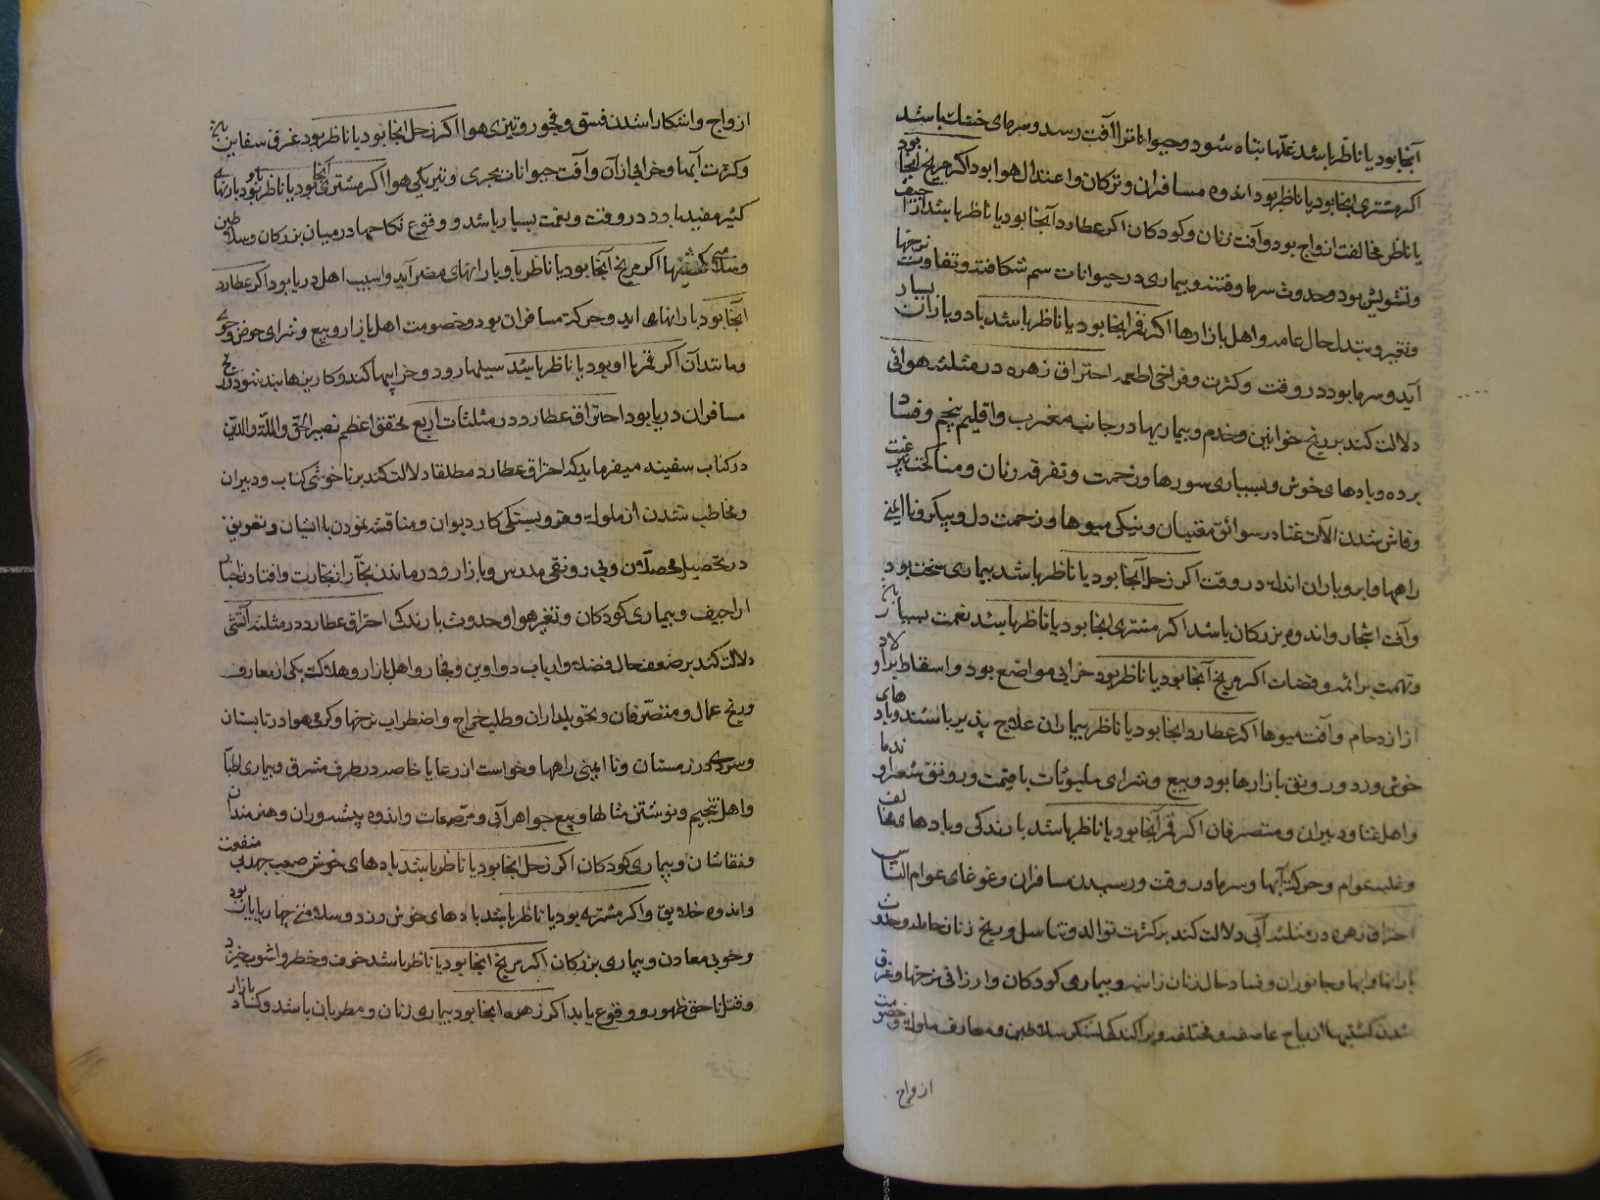 آنجا بود یا ناظر باشد غلها تباه شود و حیوانات را آفت رسد و سرمای خشک باشد
اکر مشتری انجا بود یا ناظر بود اندوه مسافران و ترکان و اعتدال هوا بود اکر مریخ انجا بود
یا ناظر مخالفت ازواج بود و آفت زنان و کودکان اکر عطارد آنجا بود یا ناظر باشد اراجیف
و تشویش بود و حدوث سرما و فتنه و بیماری در حیوانات سم شکافته و تفاوت نرخها
و تغیر و تبدل حال عامه و اهل بازارها اکر قمر انجا بود یا ناظر باشد باد و باران بسیار
آید و سرما بود در وقت و کثرت و فراخی اطعمه احتراق زهره در مثلثه هوائی
دلالت کند بر رنج خواتین و خدم و بیماریها در جانب مغرب و اقلیم پنجم و فساد
برده و بادهای خوش و بسیاری سورها و زحمت و تفرقه زنان و مناکحت بی رغبت
و فاش شدن آلات غنا و رسوائی مغنیان و نیکی میوها و زحمت دل و پیکر و ناایمنی
راهها و ابر و باران اندک در وقت اکر زحل آنجا بود یا ناظر باشد بیماری سخت بود
و آفت اشجار و اندوه بزرکان باشد اکر مشتری انجا بود یا ناظر باشد نعمت بسیار
و تهمت بر ائمه و قضات اکر مریخ آنجا بود یا ناظر بود خرابی مواضع بود و اسقاط اولاد
از ازدحام و آفت میوها اکر عطارد انجا بود یا ناظر بیماران علاج پذیر باشند و بادهای
خوش وزد و رونق بازارها بود و بیع و شرای ملبوسات با قیمت و رونق شعرا و ندما
و اهل غنا و دبیران و متصرفان اکر قمر آنجا بود یا ناظر باشد بارندکی و بادهای مخالف
و غلبه عوام و حرکت آبها و سرما در وقت و رسیدن مسافران و غوغای عوام الناس
احتراق زهره در مثلثه آبی دلالت کند بر کثرت توالد و تناسل و رنج زنان حامله و حدوث
بارانها و ابها و جانوران و فساد حال زنان زانیه و بیماری کودکان و ارزانی نرخها و غرق
شدن کشتیها از ریاح عاصفه و مختلفه و پراکندکی لشکر سلاطین و معارف ملوک و خصومت
ازواج
ازواج و اشکارا شدن فسق و فجور و تیزی هوا اکر زحل انجا بود یا ناظر بود غرق سفاین
و کثرت آبها و خرابی از آن و آفت حیوانات بحری و تیریکی هوا اکر مشتری آنجا بود یا ناظر بود بارانهای
کثیر مفید بارد در وقت و نعمت بسیار باشد و وقوع نکاحها در میان بزرکان و سلاطین
و سلامتی کشتیها اکر مریخ آنجا بود یا ناظر با و بارانهای مضر آید و اسیب اهل دریا بود اکر عطارد
آنجا بود بارانها اید و حرکت مسافران بود و خصومت اهل بازار و بیع و شرای حوض و جوی
و مانند آن اکر قمر با او بود یا ناظر باشد سیلها رود و خرابیها کند و کاریزها بند شود و رنج
مسافران دریا بود احتراق عطارد در مثلثات اربع محقق اعظم نصیر الحق و الملة و الدین
در کتاب سفینه میفرماید که احتراق عطارد مطلقا دلالت کند بر ناخوشی کتاب و دبیران
و مخاطب شدن از ملوک و بستکی کار دیوان و مناقشه نمودن با ایشان و تعویق
در تحصیل محصلان و بی رونقی مدرس و بازار و درماندن تجار از تجارت و افتادن اخبار
اراجیف و بیماری کودکان و تغیر هوا و حدوث بارندکی احتراق عطارد در مثلثه آتشی
دلالت کند بر ضعف حال فضلا و ارباب دواوین و تجار و اهل بازار و هلاکت یکی از معارف
و رنج عمال و متصرفان و تحویلداران و طلب خراج و اضطراب نرخها و کرمی هوا در تابستان
و سردی در زمستان و ناایمنی راهها و خواست از رعایا خاصه در طرف مشرق و بیماری اطبا
و اهل تنجیم و نوشتن مثالها و بیع جواهر آتی و مرصعات و اندوه پیشه وران و هنرمندان
و نقاشان و بیماری کودکان اکر زحل انجا بود یا ناظر باشد بادهای خوش صعب جهد بی منفعت
و اندوه خلایق و اکر مشتری بود یا ناظر باشد بادهای خوش وزد و سلامتی چهارپایان بود
و خوبی معادن و بیماری بزرکان اکر مریخ انجا بود یا ناظر باشد خوف و خطر و آشوب خیزد
و قتل ناحق ظهور و وقوع یابد اکر زهره انجا بود بیماری زنان و مطربان باشد و کساد بازار